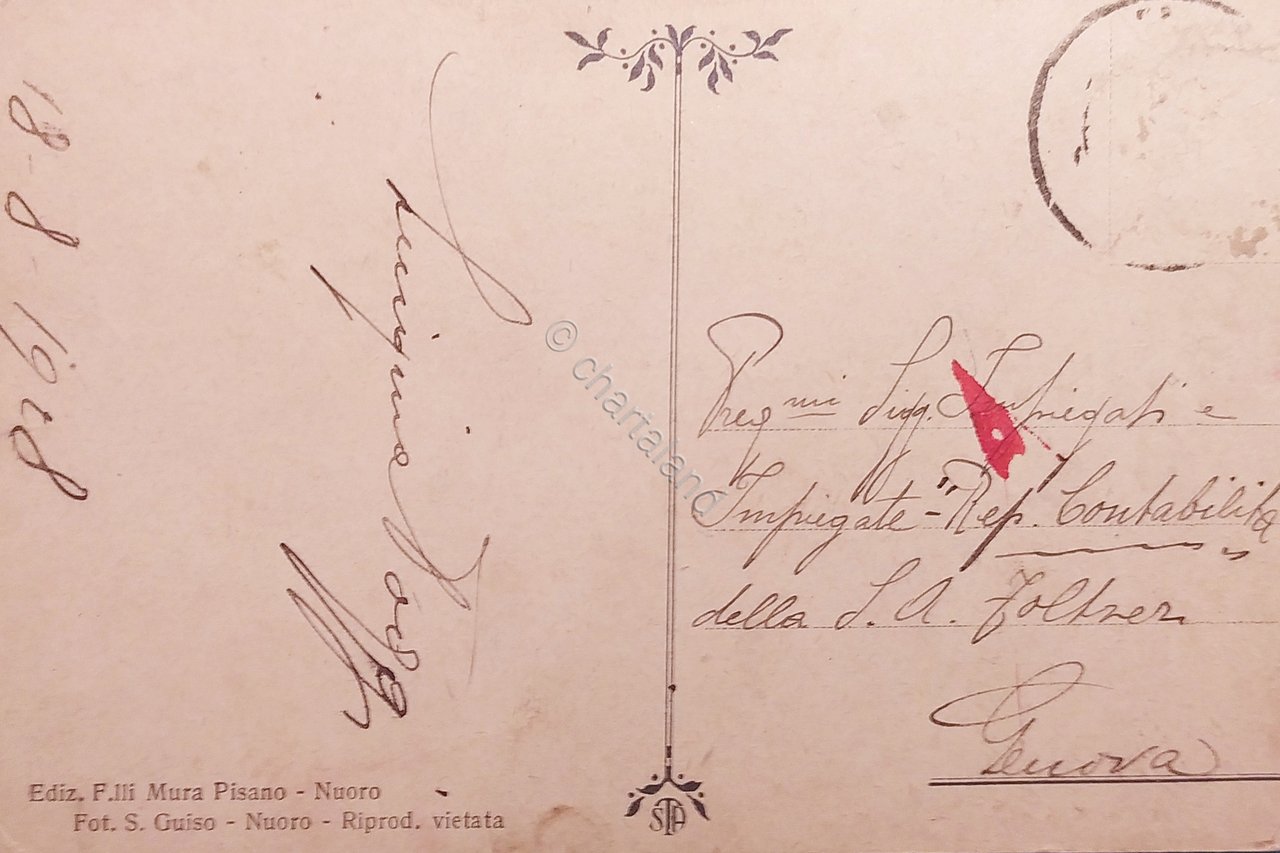 18-8-1918
Luigina
© chartaland
Preg mi Sigg. Impiegati e
Impiegate - "Rep. Contabilità
della S. A.
Genova
Ediz. F.lli Mura Pisano - Nuoro
Fot. S. Guiso - Nuoro - Riprod. vietata
STA